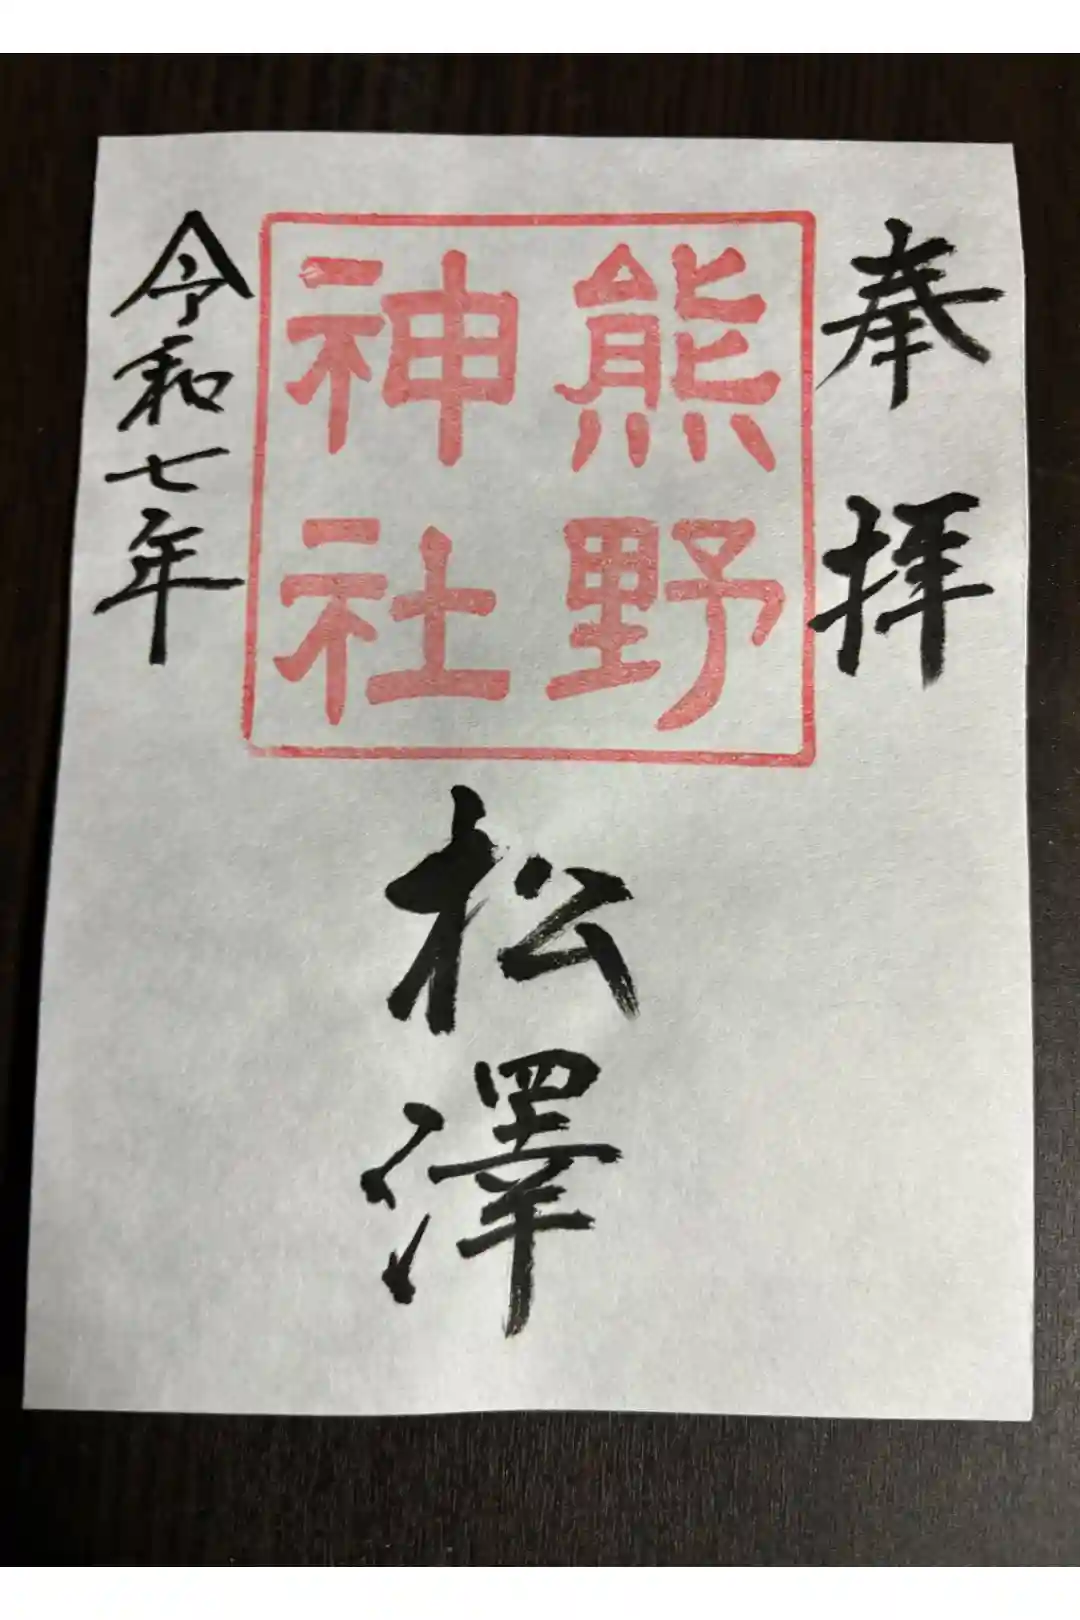 奉拝
熊野
神社
松澤
令和七年